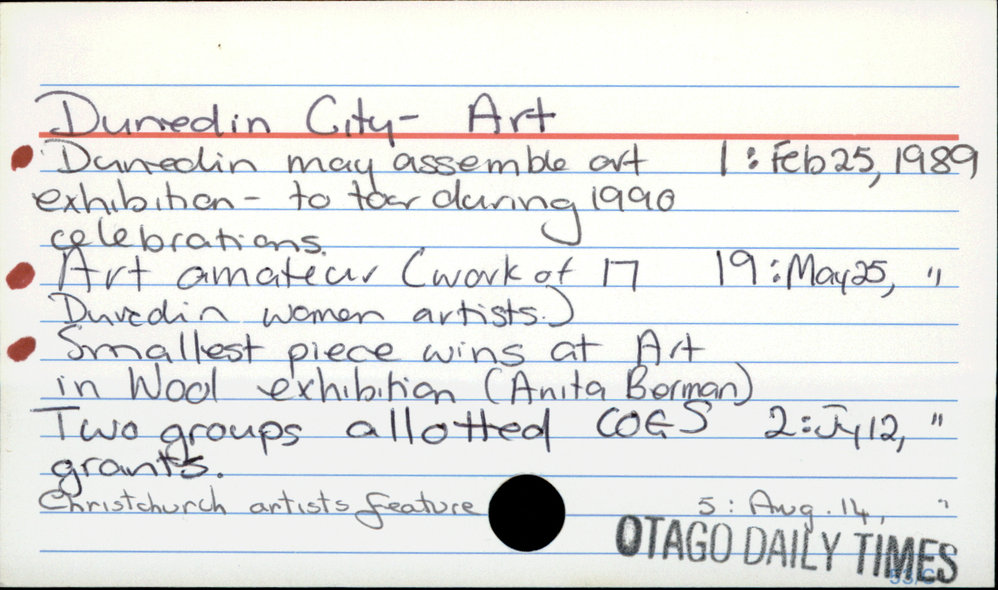 Dunedin City - Art
Dunedin may assemble art 1 : Feb 25, 1989
exhibition - to tour during 1990
celebrations.
Art amateur (work of 17 19 : May 25, "
Dunedin women artists.)
Smallest piece wins at Art
in Wool exhibition (Anita Berman)
Two groups allotted COGS 2 : Jy 12, "
grants.
Christchurch artists feature 5 : Aug. 14, "
OTAGO DAILY TIMES